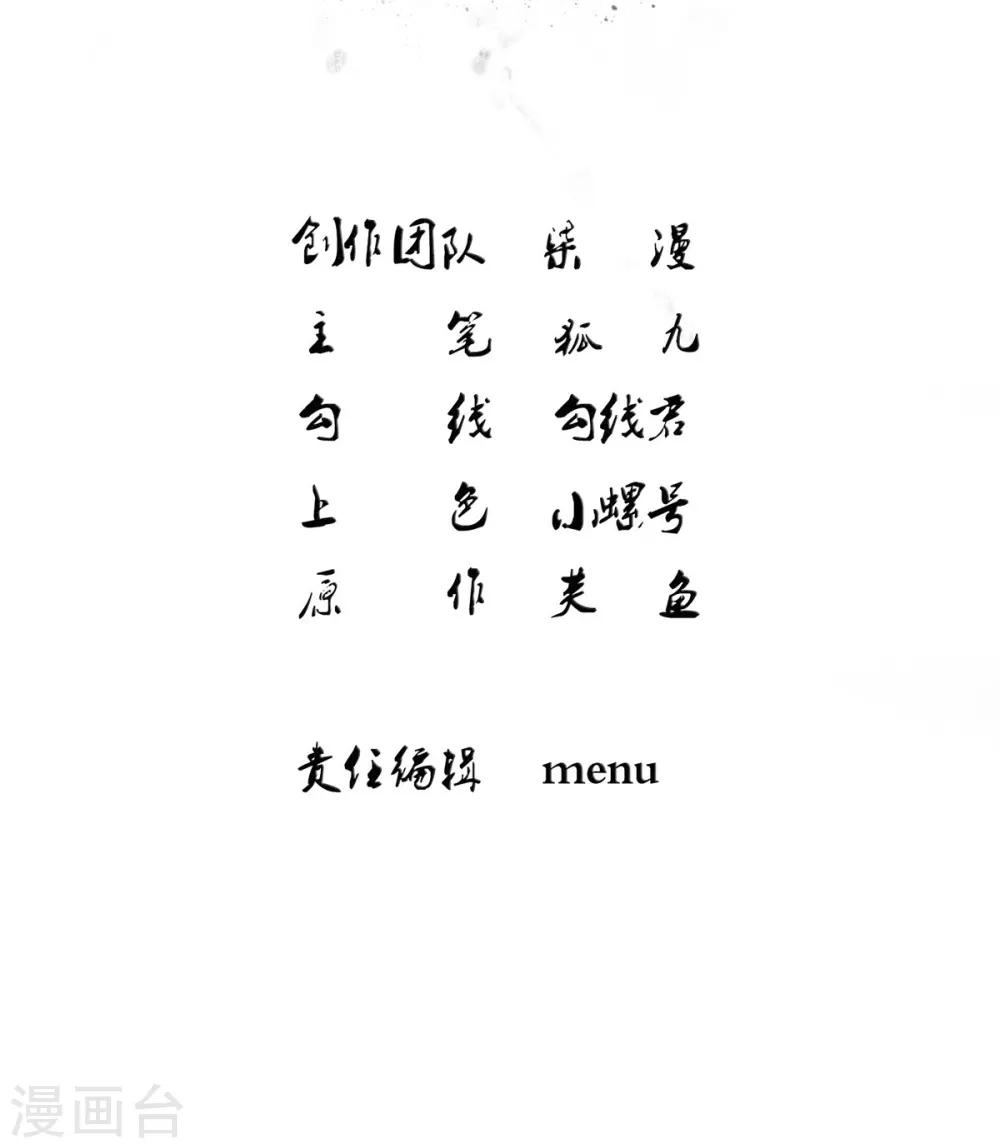 创作团队 柒漫
主笔 狐九
勾线 勾线君
上色 小螺号
原作 芙鱼
责任编辑 menu
漫画台